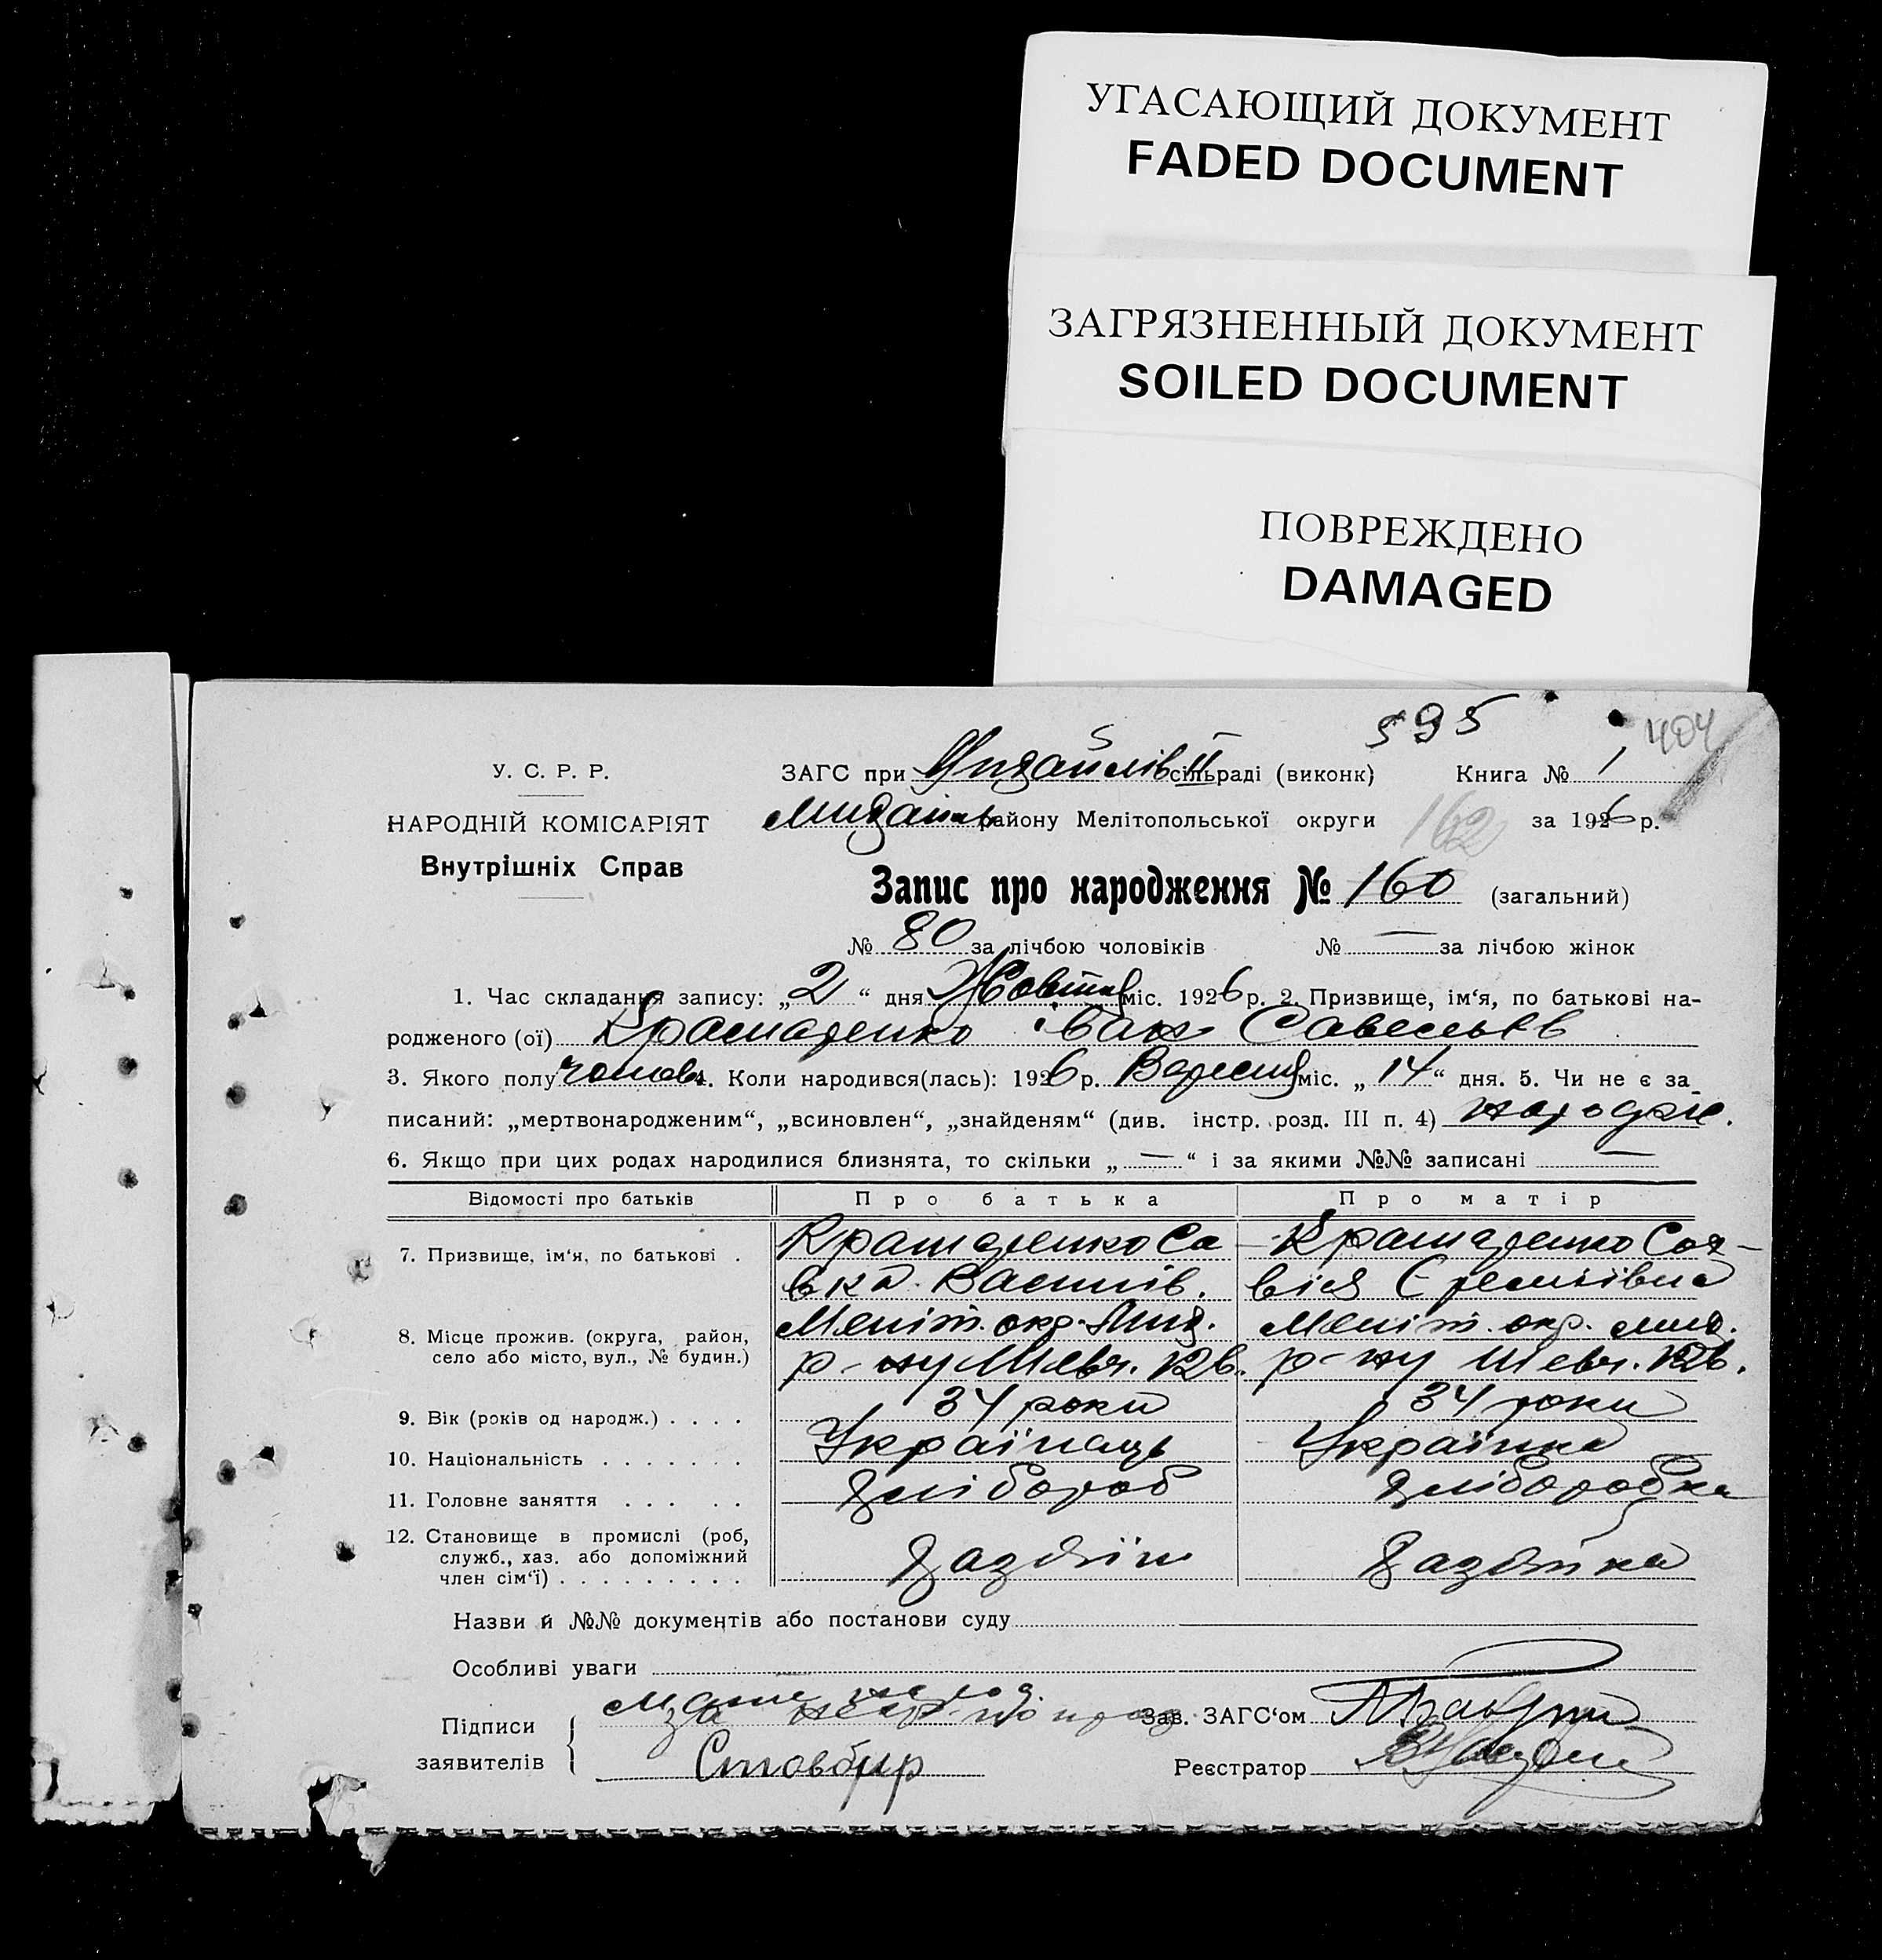 УГАСАЮЩИЙ ДОКУМЕНТ
FADED DOCUMENT
ЗАГРЯЗНЕННЫЙ ДОКУМЕНТ
SOILED DOCUMENT
ПОВРЕЖДЕНО
DAMAGED
595
404
У. С. Р. Р.
ЗАГС при Михайлів II сільраді (виконк) Книга № 1
НАРОДНІЙ КОМІСАРІЯТ
Михайлів району Мелітопольської округи 162 за 1926 р.
Внутрішніх Справ
Запис про народження № 160 (загальний)
№ 80 за лічбою чоловіків № — за лічбою жінок
1. Час складання запису: „2“ дня Жовтня міс. 1926 р. 2. Призвище, ім‘я, по батькові на-
родженого (ої) Іван Савельєв
3. Якого полу чолов. 4. Коли народився(лась): 1926 р. Вересня міс. „14“ дня. 5. Чи не є за
писаний: „мертвонародженим“, „всиновлен“, „знайденям“ (див. інстр. розд. III п. 4) народж.
6. Якщо при цих родах народилися близнята, то скільки „—“ і за якими №№ записані —
Відомості про батьків
Про батька
Про матір
7. Призвище, ім‘я, по батькові .
Са
вка Василів.
8. Місце прожив. (округа, район,
село або місто, вул., № будин.)
Меліт. окр. Мих.
р-ну Шевч.
Меліт. окр. Мих.
р-ну Шевч.
9. Вік (років од народж.) . . . .
34 роки
34 роки
10. Національність . . . . . . .
Українець
Українка
11. Головне заняття . . . . .
Хлібороб
Хліборобка
12. Становище в промислі (роб,
служб., хаз. або допоміжний
член сім‘ї) . . . . . . . . .
Хазяїн
Хазяйка
Назви й №№ документів або постанови суду
Особливі уваги
Підписи
заявителів
за
Стовбир
Зав. ЗАГС‘ом
Реєстратор